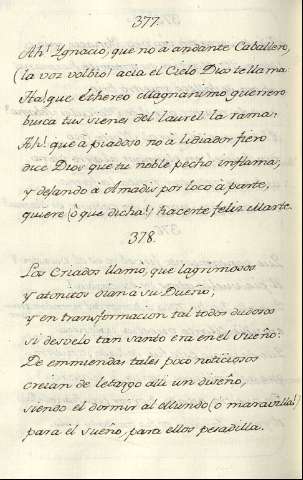 377.
Ah! Ygnacio, que no à andante Caballero,
(la voz volbio) àcia el Cielo Dios te llama
Ha! que Ethereo Magnanimo guerrero
busca tus sienes del laurel la rama:
Ah! que à piadoso no à lidiador fiero
dice Dios que tu noble pecho inflama,
y dejando à Amadis por loco à parte,
quiere (ò que dicha!) hacerte feliz Marte.
378.
Los Criados llamo, que lagrimosos
y atonitos oian à su Dueño,
y en transformacion tal todos dudosos
si desvelo tan santo era en el sueño:
De emmiendas tales poco noticiosos
creian de letargo alli un diseño,
siendo el dormir al (ò maravilla!)
para él sueño, para ellos pesadilla.